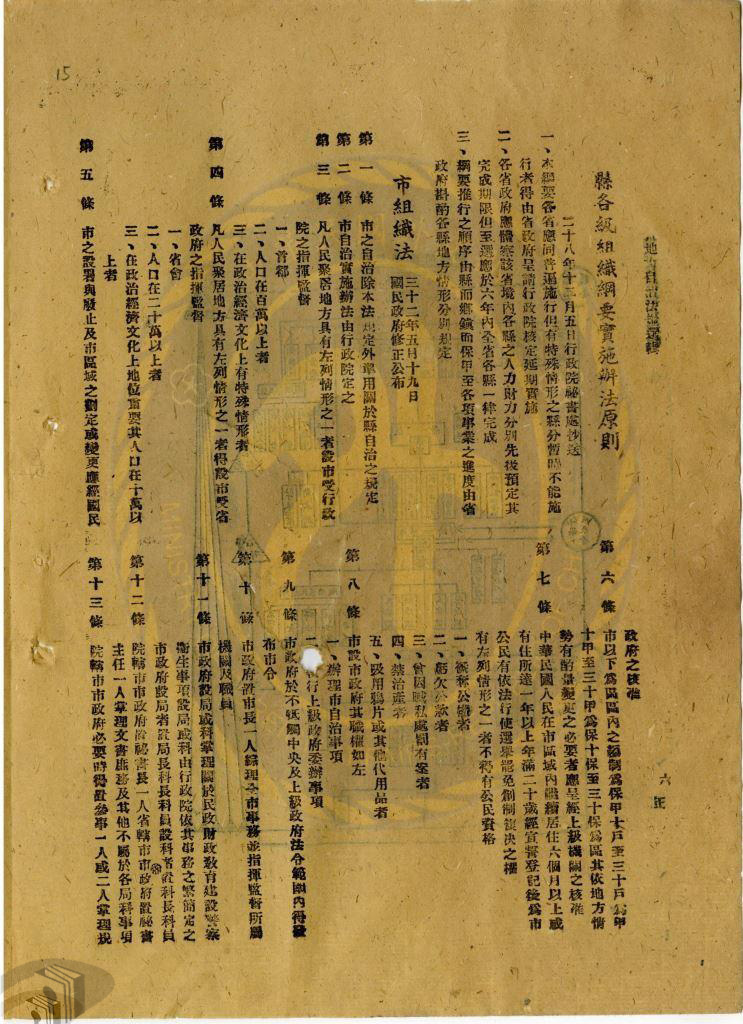 地方自治法規選輯
縣各級組織綱要實施辦法原則
二十八年十二月五日行政院秘書處抄送
一、本綱要各省應同普遍施行但有特殊情形之縣分暫時不能施
行者得由省政府呈請行政院核定延期實施
二、各省政府應體察該省境內各縣之人力財力分別先後預定其
完成期限但至遲應於六年內全省各縣一律完成
三、綱要推行之順序由縣而鄉鎮而保甲至各項事業之進度由省
政府斟酌各縣地方情形分別規定
市組織法
三十二年五月十九日
國民政府修正公布
第一條 市之自治除本法規定外準用關於縣自治之規定
第二條 市自治實施辦法由行政院定之
第三條 凡人民聚居地方具有左列情形之一者設市受行政
院之指揮監督
一、首都
二、人口在百萬以上者
三、在政治經濟文化上有特殊情形者
第四條 凡人民聚居地方具有左列情形之一者得設市受省
政府之指揮監督
一、省會
二、人口在二十萬以上者
三、在政治經濟文化上地位重要其人口在十萬以
上者
第五條 市之設置與廢止及市區域之劃定或變更應經國民
政府之核准
第六條 市以下為區區內之編制為保甲十戶至三十戶為甲
十甲至三十甲為保十保至三十保為區其依地方情
勢有酌量變更之必要者應呈經上級機關之核准
第七條 中華民國人民在市區域內繼續居住六個月以上或
有住所達一年以上年滿二十歲經宣誓登記後為市
公民有依法行使選舉罷免創制複決之權
有左列情形之一者不得有公民資格
一、褫奪公權者
二、虧欠公款者
三、曾因贓私處罰有案者
四、禁治產者
五、吸用鴉片或其他代用品者
第八條 市設市政府其職權如左
一、辦理市自治事項
二、執行上級政府委辦事項
第九條 市政府於不牴觸中央及上級政府法令範圍內得發
布市令
第十條 市政府設市長一人綜理全市事務並指揮監督所屬
機關及職員
第十一條 市政府設局或科掌理關於民政財政教育建設警察
衛生事項設局或科由行政院依其事務之繁簡定之
市政府設局者置局長科長科員設科者置科長科員
第十二條 院轄市市政府置秘書長一人省轄市市政府置秘書
主任一人掌理文書庶務及其他不屬於各局科事項
第十三條 院轄市市政府必要時得置參事一人或二人掌理規
六 正
15